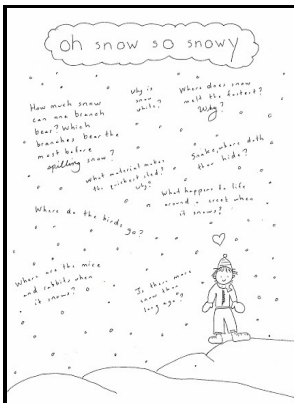 oh snow so snowy
How much snow
can one branch
bear? Which
branches bear the
most before
spilling snow?
Why is
snow
white?
Where does snow
melt the fastest?
Why?
What material makes
the quickest sled?
Why?
Snake, where doth
thou hide?
What happens to life
around a creek when
it snows?
Where do the birds
go?
Where are the mice
and rabbits when
it snows?
Is there more
snow than
long ago?